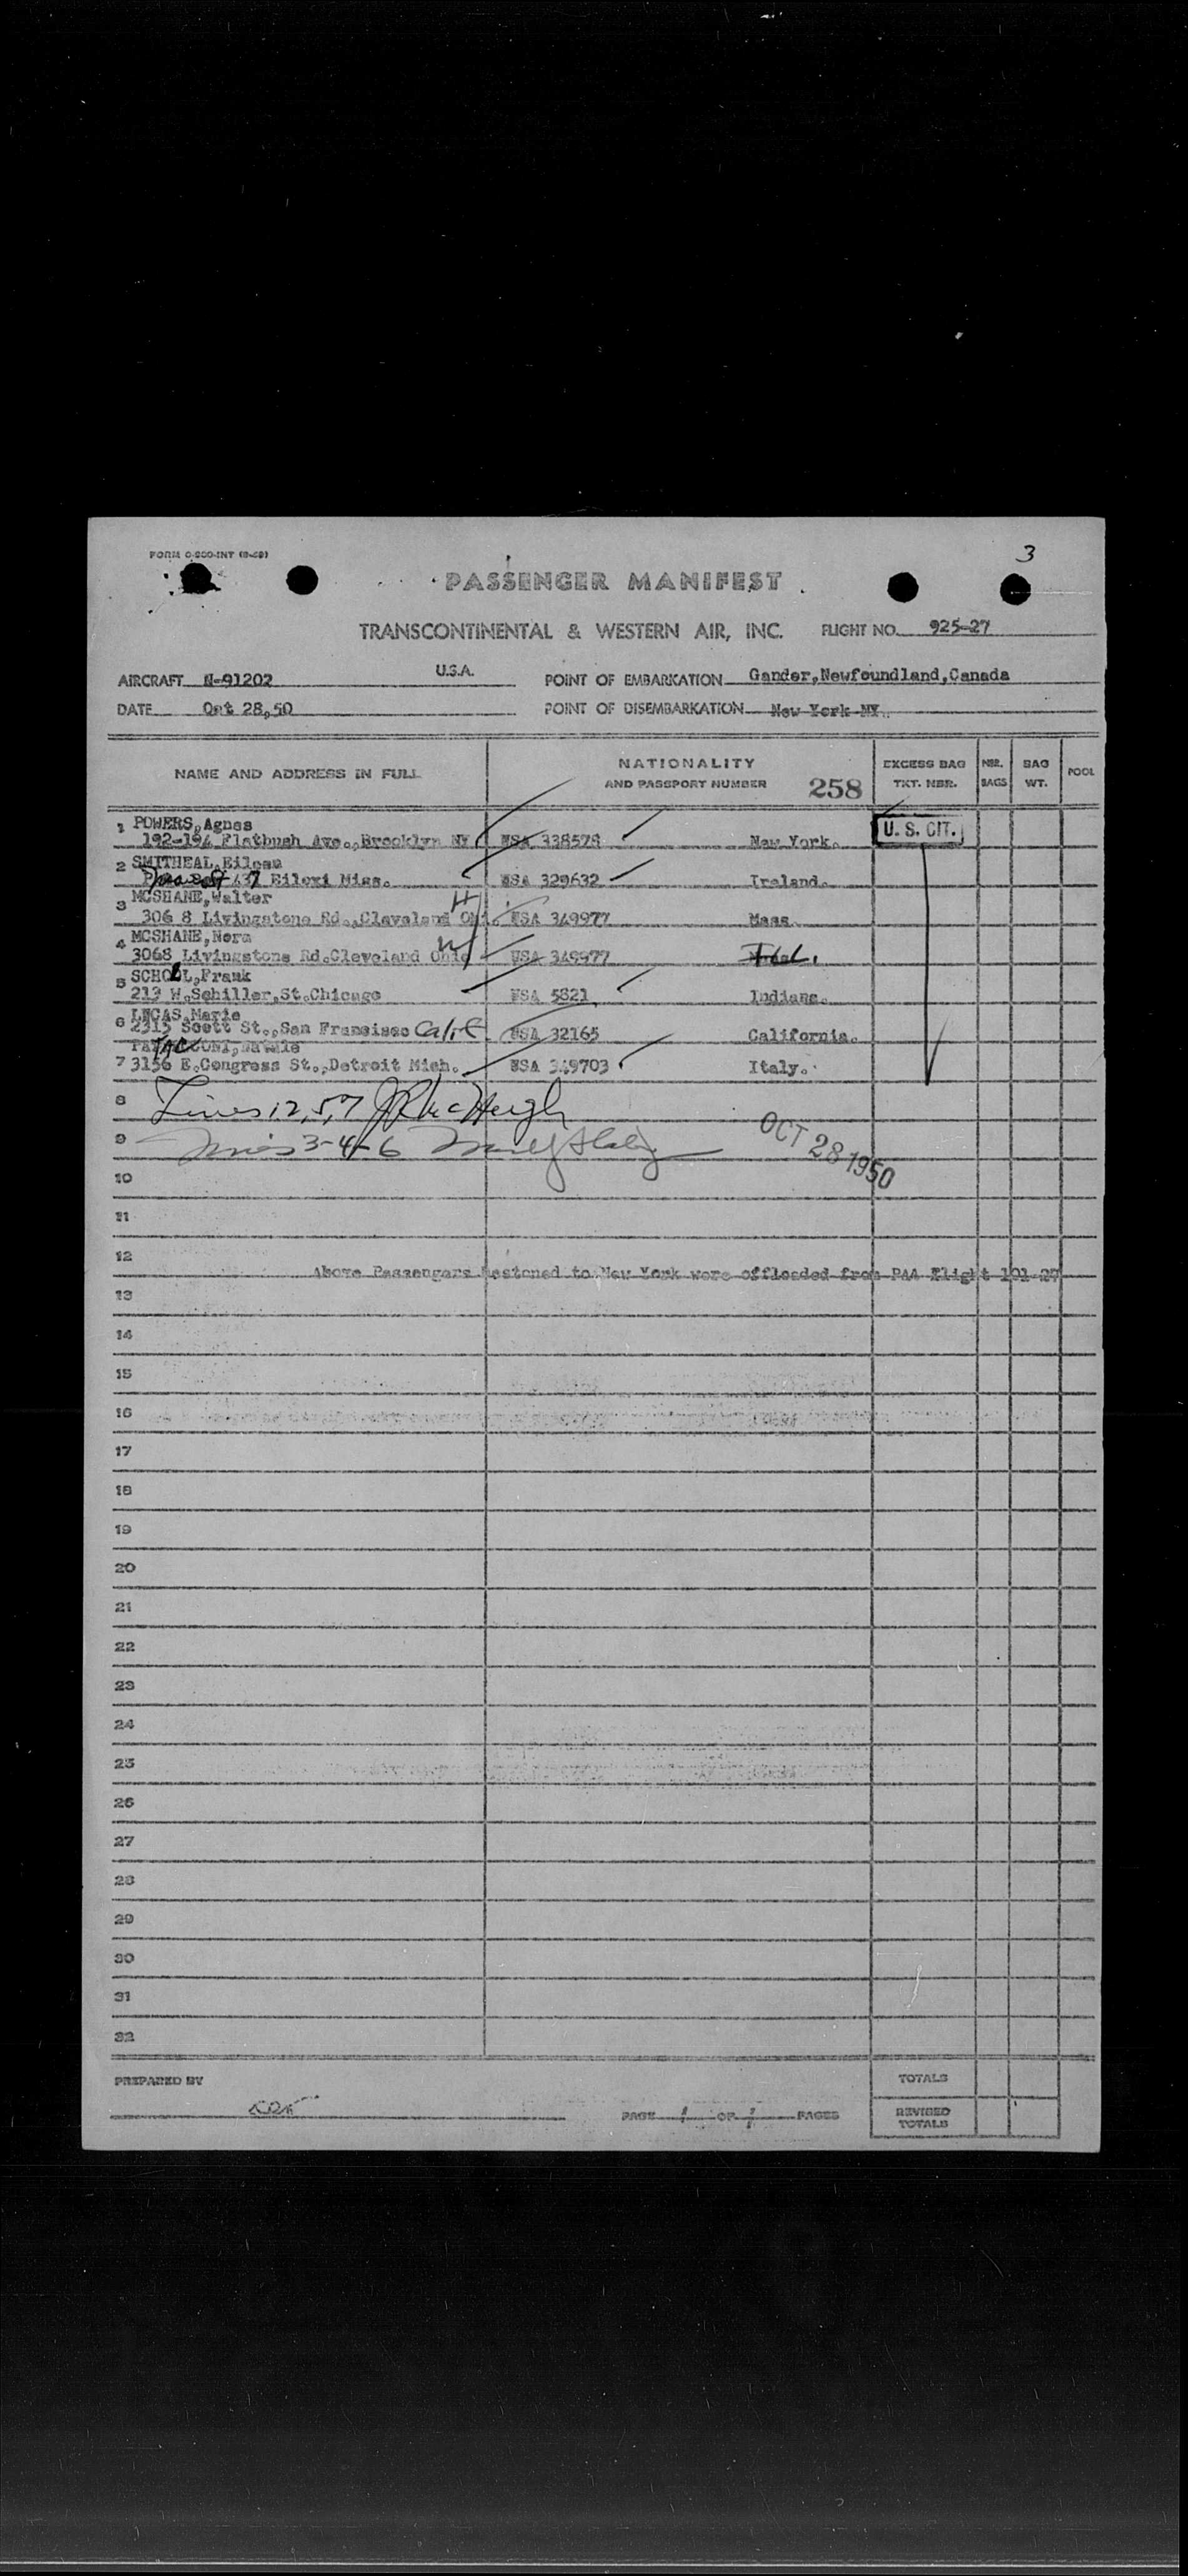 FORM O-800-INT
3
PASSENGER MANIFEST
TRANSCONTINENTAL & WESTERN AIR, INC. FLIGHT NO. 925-27
AIRCRAFT N-91202 U.S.A. POINT OF EMBARKATION Gander,Newfoundland,Canada
DATE Oct 28,50 POINT OF DISEMBARKATION New York NY.
NAME AND ADDRESS IN FULL NATIONALITY AND PASSPORT NUMBER 258 EXCESS BAG TKT. NBR. NBR. BAGS BAG WT. POOL
1 POWERS,Agnes
192-194 Flatbush Ave.,Brooklyn NY. USA 338578 New York. U. S. CIT.
2 SMITHEAL,Eileen
437 Biloxi Miss. USA 329632 Ireland.
3 MCSHANE,Walter H
306 8 Livingstone Rd.,Cleveland Ohi. USA 349977 Mass.
4 MCSHANE,Nora W
3068 Livingstone Rd.Cleveland Ohio USA 349977
5 SCHOLL,Frank
213 W.Schiller,St.Chicago USA 5821 Indiana.
6 LUCAS,Marie
2315 Scott St.,San Francisco Calif. USA 32165 California.
7 3156 E.Congress St.,Detroit Mich. USA 349703 Italy.
8 Lines 1,2,5,7
9 Lines 3-4-6
OCT 28 1950
10
11
12
Above Passengers Destened to New York were offloaded from PAA Flight 101-27
13
14
15
16
17
18
19
20
21
22
23
24
25
26
27
28
29
30
31
32
PREPARED BY TOTALS
PAGE 1 OF 1 PAGES REVISED TOTALS